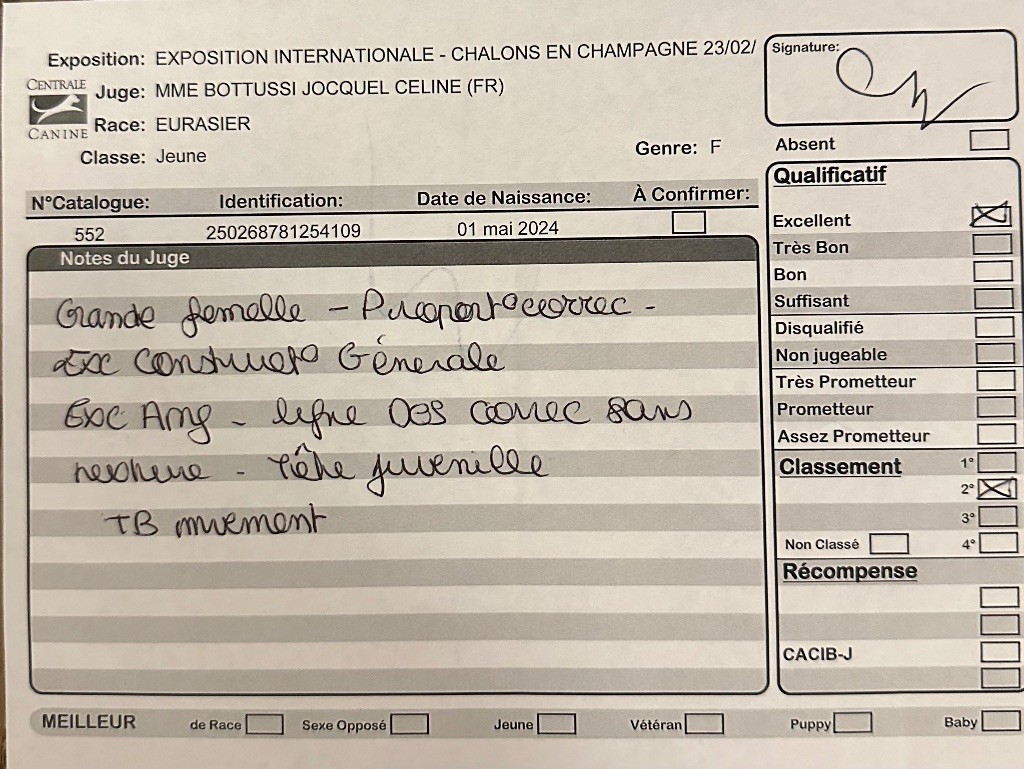 Exposition: EXPOSITION INTERNATIONALE - CHALONS EN CHAMPAGNE 23/02/
CENTRALE CANINE
Juge: MME BOTTUSSI JOCQUEL CELINE (FR)
Race: EURASIER
Classe: Jeune
Genre: F
N°Catalogue: Identification: Date de Naissance: À Confirmer:
552 250268781254109 01 mai 2024
Notes du Juge
Grande femelle - Proport° correc -
Exc Construct° Génerale
Exc Ang - ligne DOS correc sans
- Tête juvenille
TB muvement
Signature:
Absent
Qualificatif
Excellent
Très Bon
Bon
Suffisant
Disqualifié
Non jugeable
Très Prometteur
Prometteur
Assez Prometteur
Classement 1°
2°
3°
Non Classé 4°
Récompense
CACIB-J
MEILLEUR de Race Sexe Opposé Jeune Vétéran Puppy Baby